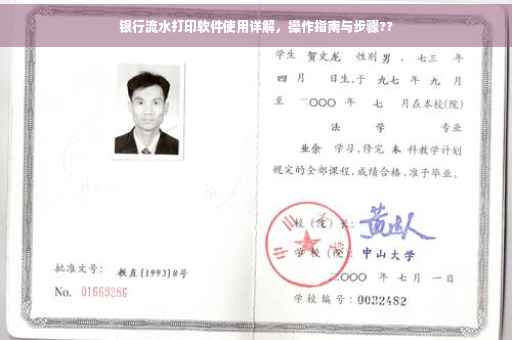 银行流水打印软件使用详解，操作指南与步骤??
学生 贺文龙 性别 男 、七三 年
四 月 日生,于 九七 年 九 月
至 二〇〇〇 年 七 月在本校(院)
法 学 专业
业余 学习,修完 本 科教学计划
规定的全部课程,成绩合格,准予毕业。
校(院)长:
学校(院): 中山大学
二〇〇〇 年 七 月 一 日
学校编号: 0032482
批准文号: 教直[1993]8号
No. 01669286